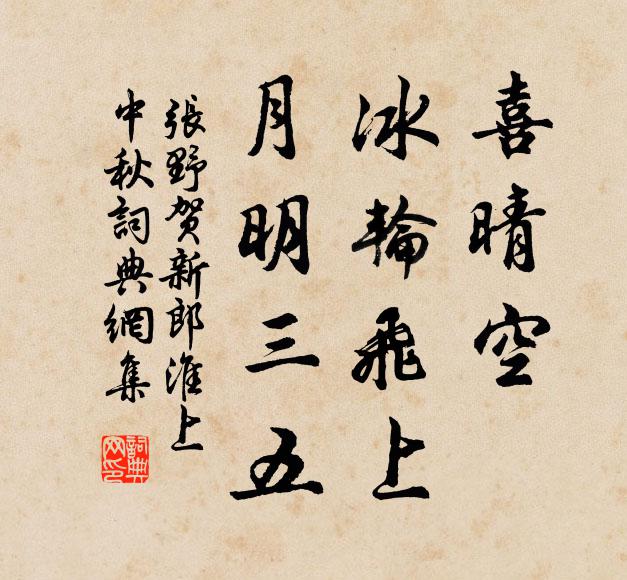 喜晴空
冰輪飛上
月明三五
張野賀新郎淮上
中秋詞典網集
詞典网印